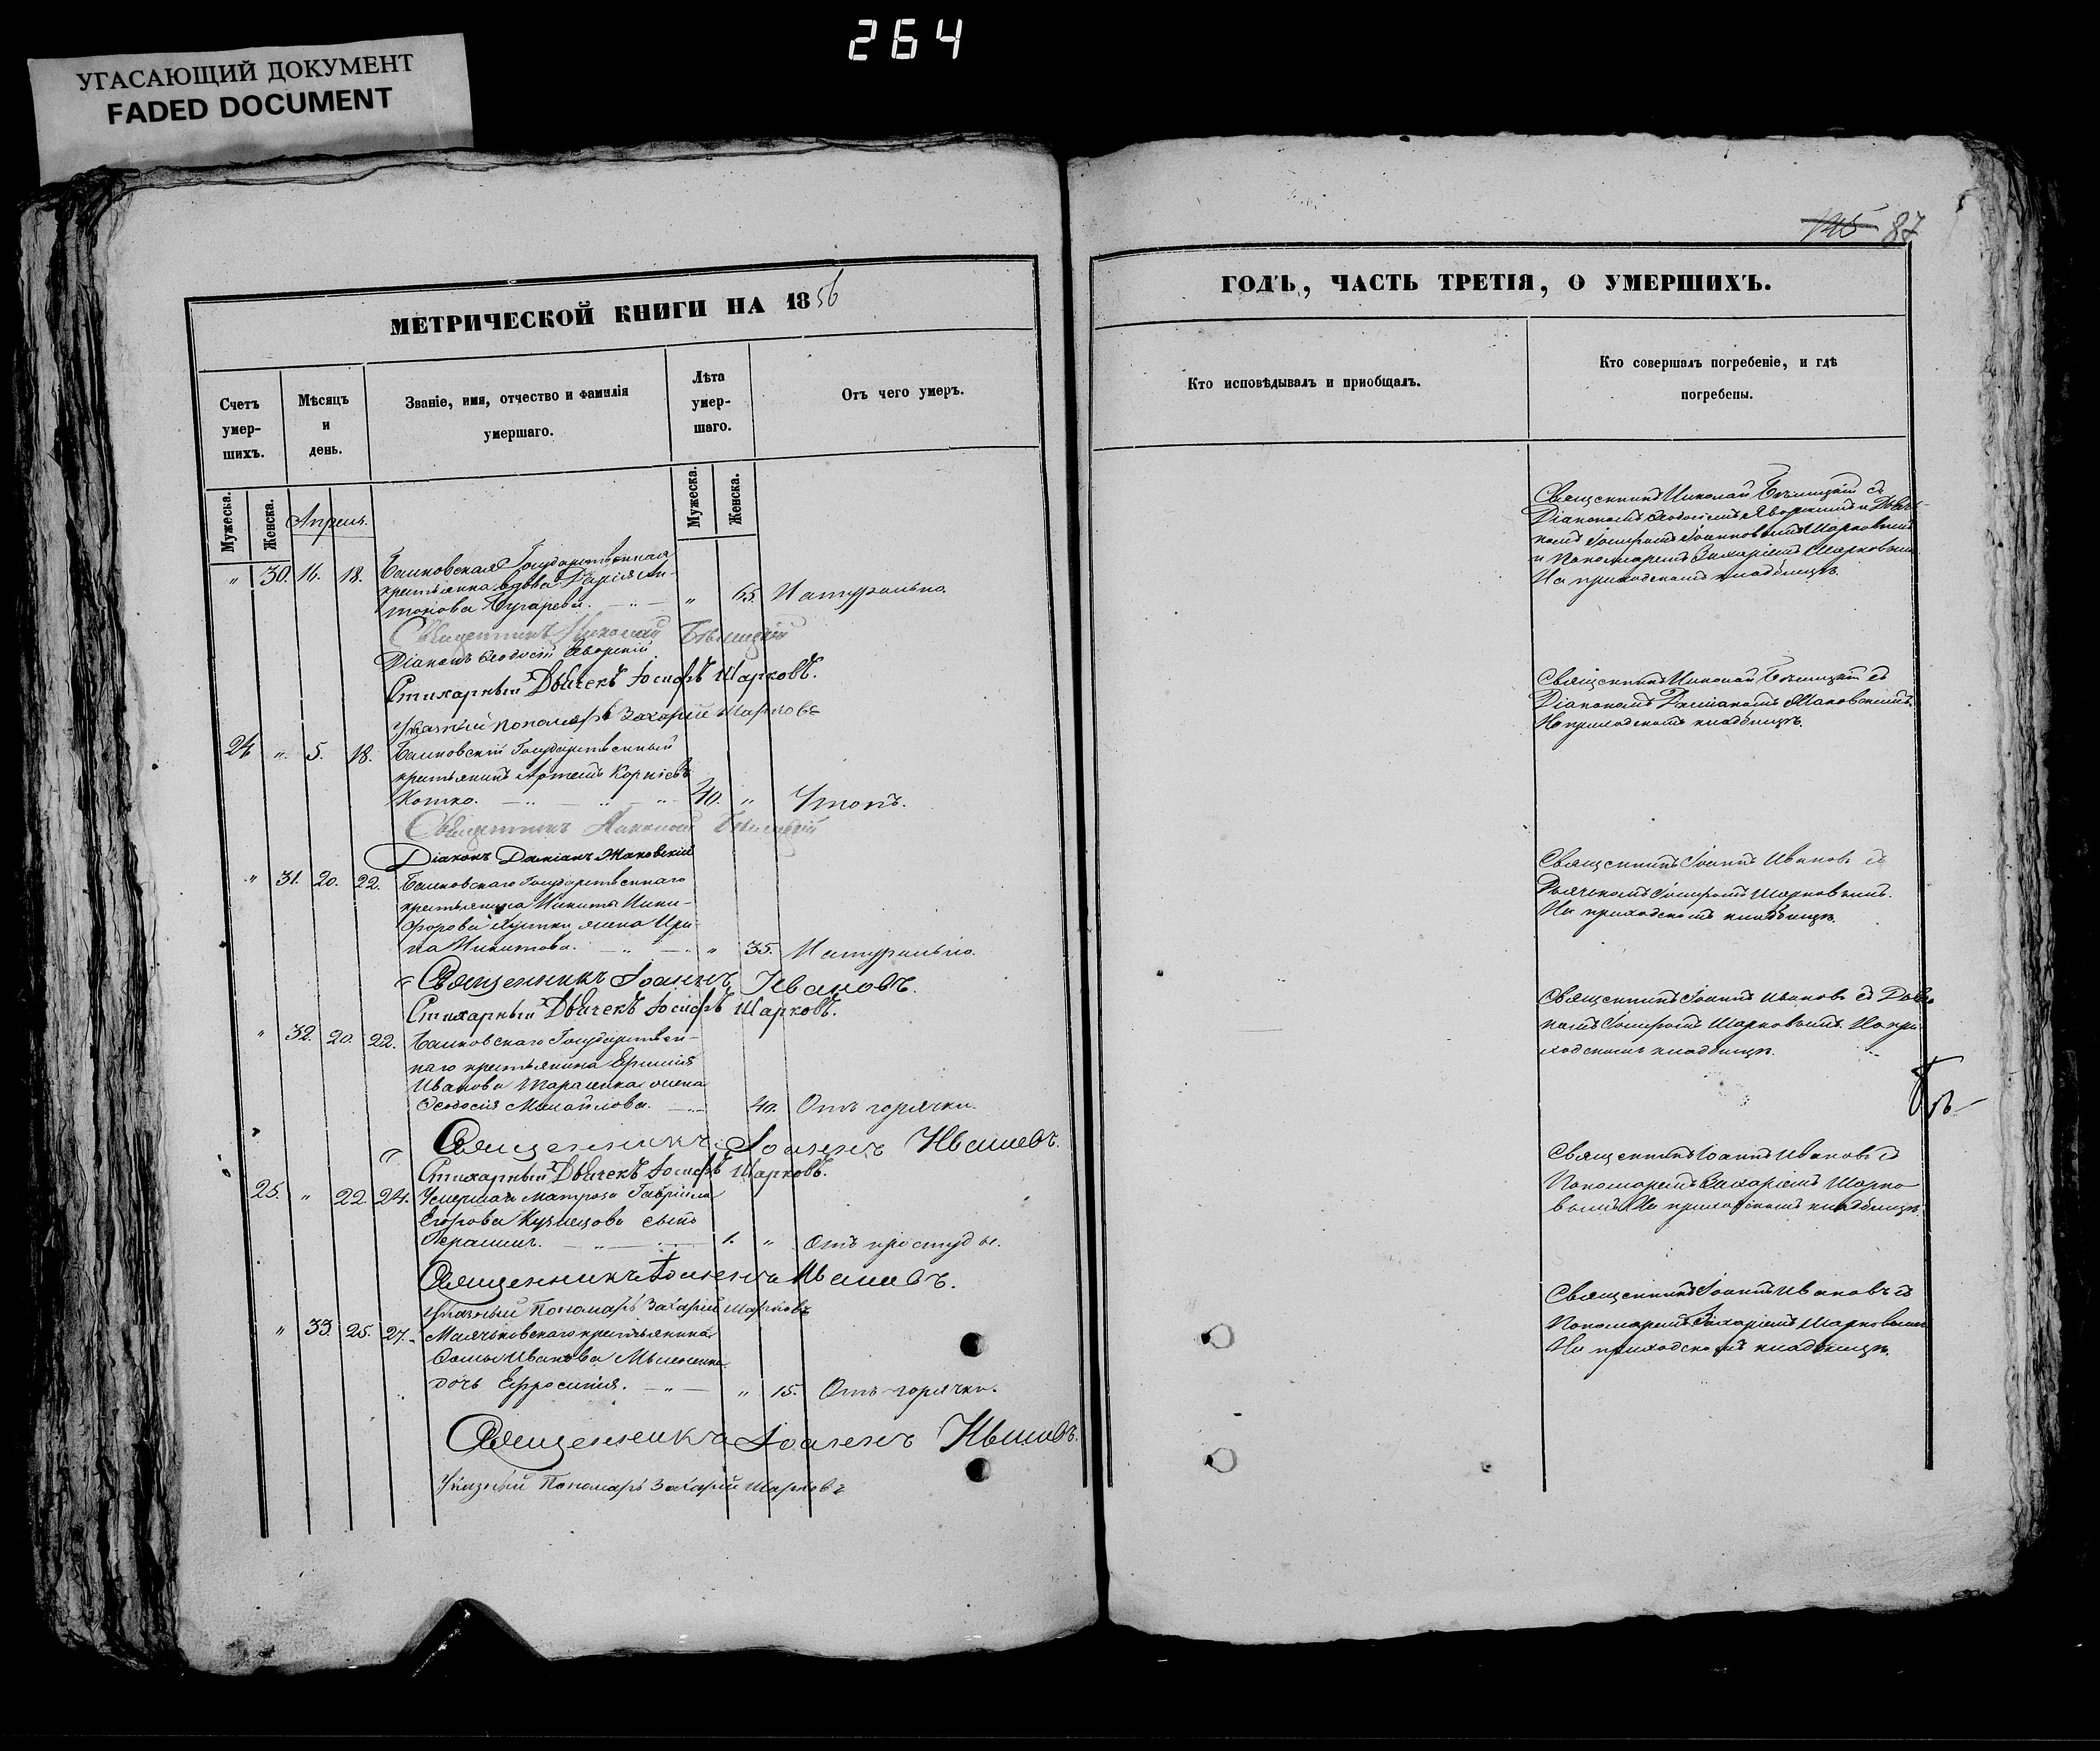 264
УГАСАЮЩИЙ ДОКУМЕНТ
FADED DOCUMENT
МЕТРИЧЕСКОЙ КНИГИ НА 1856
Счетъ умер-шихъ.
Мѣсяцъ и день.
Званіе, имя, отчество и фамилія умершаго.
Лѣта умер-шаго.
Отъ чего умеръ.
Мужеска.
Женска.
Мужеска.
Женска.
Апрель.
" 30. 16. 18. Балковская Государственная
крестьянка вдова Дарія Ан-
тонова " 65. Натурально.
Священникъ Николай Бѣлицкій
Діаконъ Ѳеодосій Яворскій
Стихарный Дьячекъ Іосифъ Шарковъ.
Указный пономарь Захарій Шарковъ
24 " 5. 18. Балковскій Государственный
крестьянинъ Артемъ Корніевъ
Котко. 40. " Утопъ.
Священникъ Николай Бѣлицкій
Діаконъ Даміанъ Маковскій
" 31. 20. 22. Балковскаго Государственнаго
крестьянина Никиты Ники-
форова жена Ири-
на Никитова. " 35. Натурально.
Священникъ Іоаннъ Ивановъ.
Стихарный Дьячекъ Іосифъ Шарковъ.
" 32. 20. 22. Балковскаго Государствен-
наго крестьянина
Иванова жена
Ѳеодосія Михайлова. 40. Отъ горячки.
Священникъ Іоаннъ Ивановъ.
Стихарный Дьячекъ Іосифъ Шарковъ.
25. " 22. 24. Умершаго матроза Гавріила
Егорова Кузнецова сынъ
Герасимъ. 1. " Отъ простуды.
Священникъ Іоаннъ Ивановъ.
Указный Пономарь Захарій Шарковъ
" 33. 25. 27. крестьянина
Ивanова
дочь Ефросинія. " 15. Отъ горячки.
Священникъ Іоаннъ Ивановъ.
Указный Пономарь Захарій Шарковъ
87
ГОДЪ, ЧАСТЬ ТРЕТІЯ, О УМЕРШИХЪ.
Кто исповѣдывалъ и пріобщалъ.
Кто совершалъ погребеніе, и гдѣ
погребены.
Священникъ Николай Бѣлицкій съ
Діакономъ Ѳеодосіемъ Яворскимъ и Дьяч-
комъ Іосифомъ Шарковымъ
и Пономаремъ Захаріемъ Шарковымъ
На приходскомъ кладбищѣ.
Священникъ Николай Бѣлицкій съ
Діакономъ Даміаномъ Маковскимъ.
На приходскомъ кладбищѣ.
Священникъ Іоаннъ Ивановъ съ
Дьячкомъ Іосифомъ Шарковымъ.
На приходскомъ кладбищѣ.
Священникъ Іоаннъ Ивановъ съ Дьяч
комъ Іосифомъ Шарковымъ. На при
ходскомъ кладбищѣ.
Священникъ Іоаннъ Ивановъ съ
Пономаремъ Захаріемъ Шарко
вымъ. На приходскомъ кладбищѣ.
Священникъ Іоаннъ Ивановъ съ
Пономаремъ Захаріемъ Шарковымъ
На приходскомъ кладбищѣ.